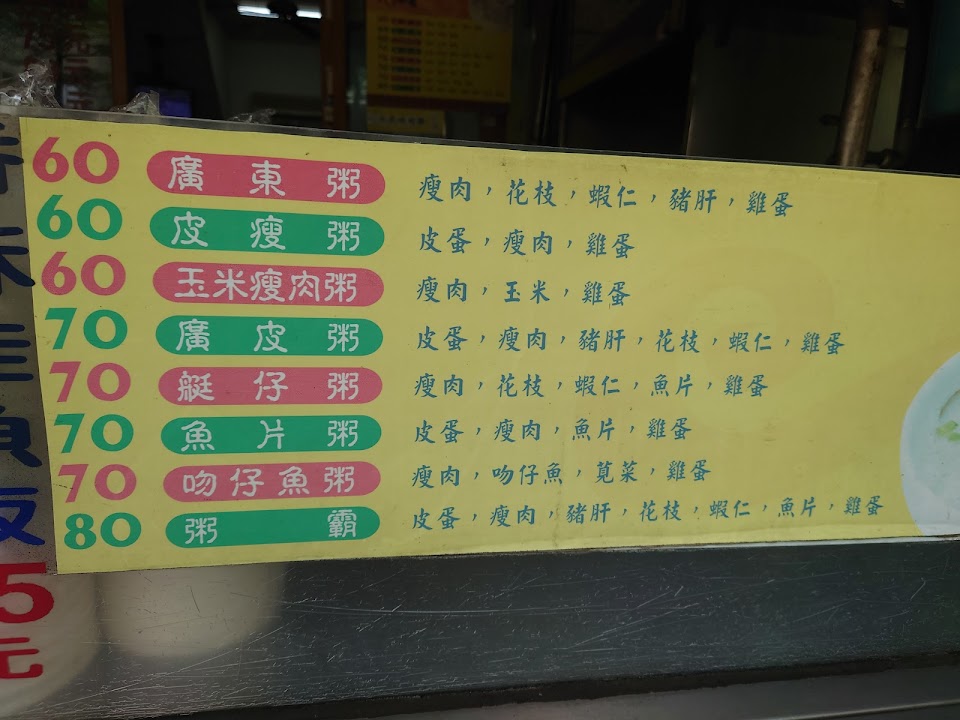 60 廣東粥 瘦肉，花枝，蝦仁，豬肝，雞蛋
60 皮瘦粥 皮蛋，瘦肉，雞蛋
60 玉米瘦肉粥 瘦肉，玉米，雞蛋
70 廣皮粥 皮蛋，瘦肉，豬肝，花枝，蝦仁，雞蛋
70 艇仔粥 瘦肉，花枝，蝦仁，魚片，雞蛋
70 魚片粥 皮蛋，瘦肉，魚片，雞蛋
70 吻仔魚粥 瘦肉，吻仔魚，莧菜，雞蛋
80 粥霸 皮蛋，瘦肉，豬肝，花枝，蝦仁，魚片，雞蛋
5元